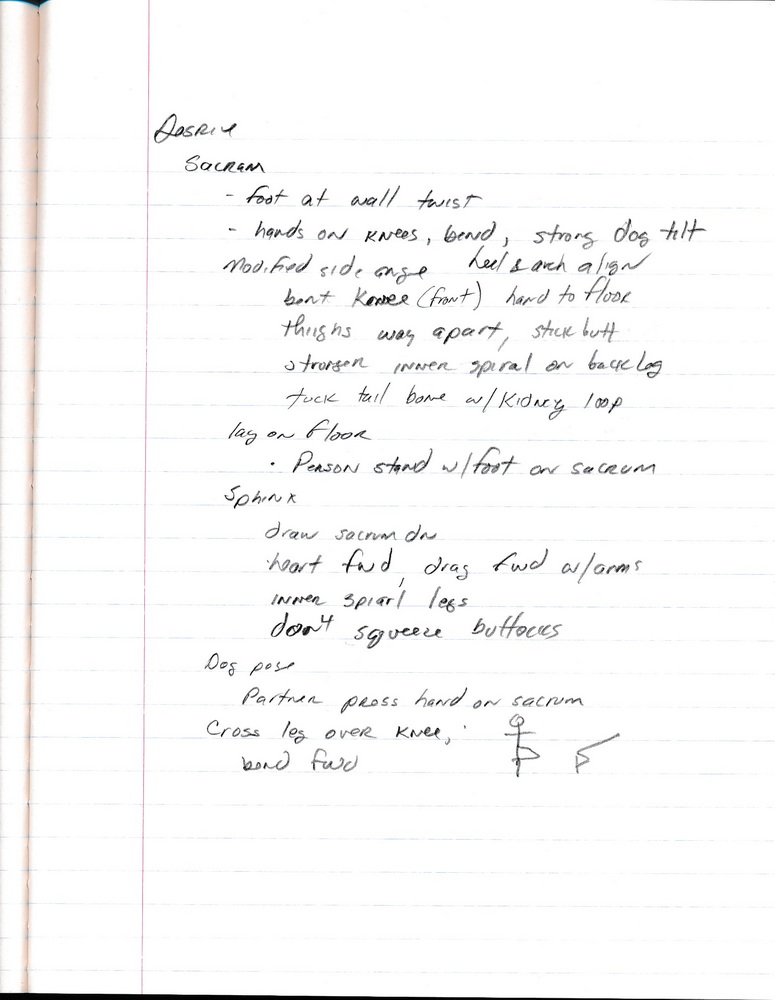 Desric
Sacram
- foot at wall twist
- hands on knees, bend, strong dog tilt
Modified side angle heel & arch align
bent Knee (front) hand to floor
thighs way apart, stick butt
stronger inner spiral on back leg
tuck tail bone w/ Kidney loop
lay on floor
• Person stand w/ foot on sacrum
Sphinx
draw sacrum dn
heart fwd, drag fwd w/ arms
inner spiarl legs
don't squeeze buttocks
Dog pose
Partner press hand on sacrum
Cross leg over knee,
bend fwd